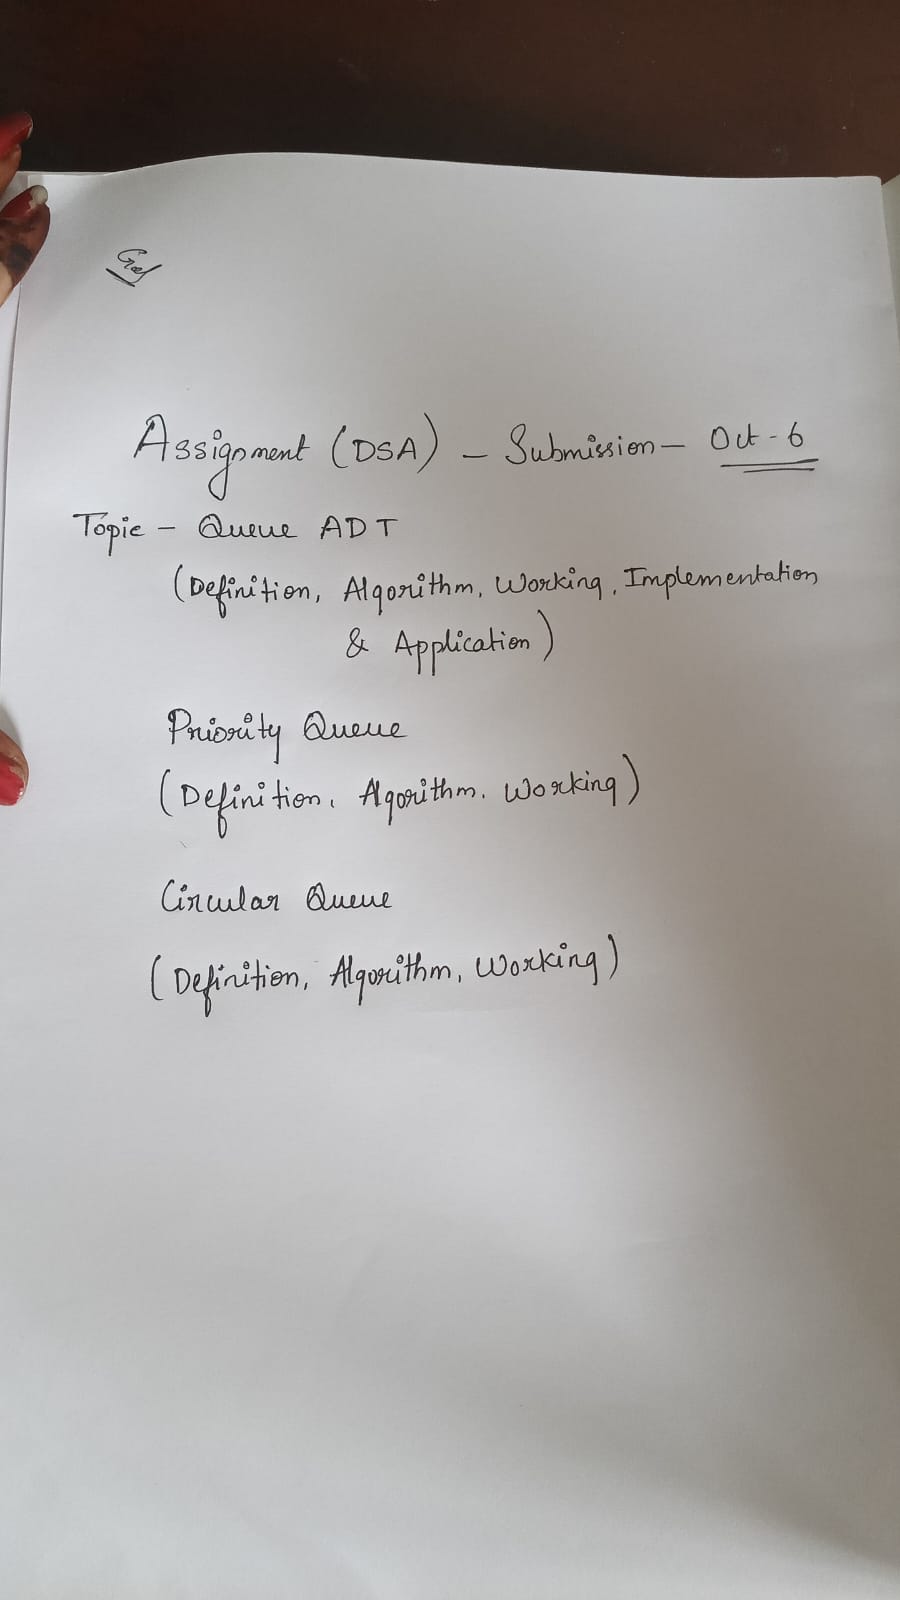 Assignment (DSA) - Submission - Oct - 6
Topic - Queue ADT
(Definition, Algorithm, Working, Implementation
& Application)
Priority Queue
(Definition, Algorithm, Working)
Circular Queue
(Definition, Algorithm, Working)